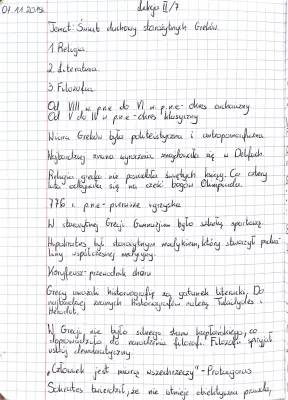 07.11.2019r. Lekcja II/7
Temat: Świat duchowy starożytnych Greków.
1. Religia.
2. Literatura.
3. Filozofia.
Od VIII w. p.n.e do VI w p.n.e - okres archaiczny
Od V do IV w p.n.e - okres klasyczny
Wiara Greków była politeistyczna i antropomorficzna.
Najbardziej znana wyrocznia znajdowała się w Delfach.
Religia grecka nie posiadała świętych ksiąg. Co cztery
lata odbywała się na cześć bogów Olimpiada.
776 r. p.n.e - pierwsze igrzyska
W starożytnej Grecji Gimnazjum było szkołą sportową.
Hipokrates był starożytnym medykiem, który stworzył
współczesnej medycyny.
Koryfeusz - przewodnik chóru
Grecy uważali historiografię za gatunek literacki. Do
najbardziej znanych historiografów należą Tukidydes i
Herodot.
W Grecji nie było silnego stanu kapłańskiego, co
doprowadziło do narodzenia filozofii. Filozofii sprzyjał
ustrój demokratyczny
„Człowiek jest miarą wszechrzeczy" - Protagoras
Sokrates twierdził, że nie istnieje obiektywna prawda,